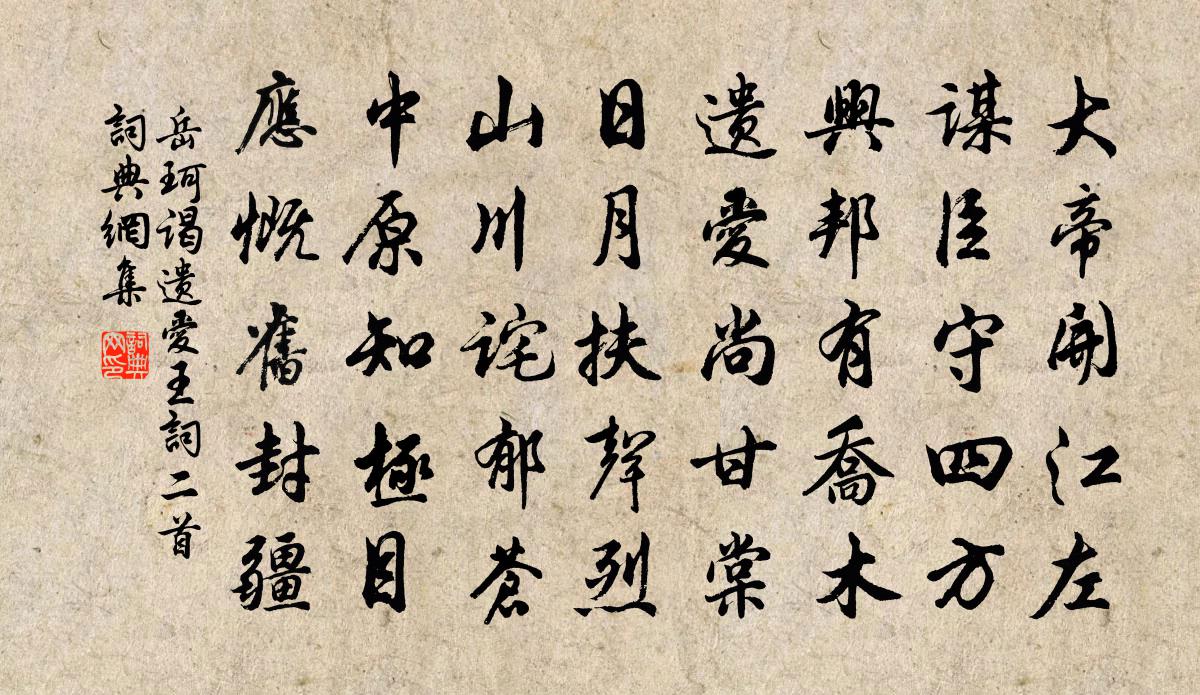 大帝開江左
謀臣守四方
興邦有喬木
遗愛尚甘棠
日月扶聲烈
山川詫郁蒼
中原知極目
應慨舊封疆
岳珂谒遗愛王詞二首
詞典網集
詞典網印